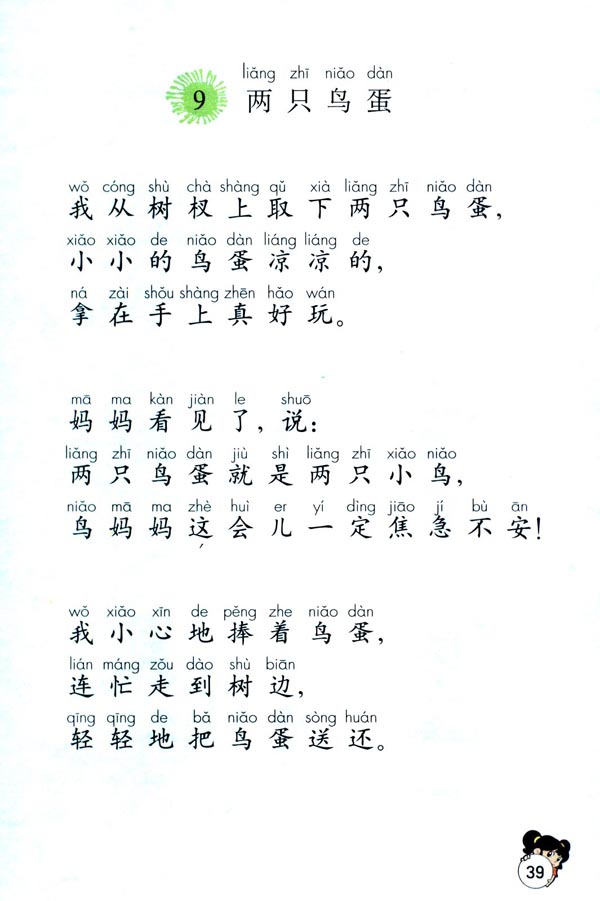 liǎng zhī niǎo dàn
9 两只鸟蛋
wǒ cóng shù chà shàng qǔ xià liǎng zhī niǎo dàn
我从树杈上取下两只鸟蛋,
xiǎo xiǎo de niǎo dàn liáng liáng de
小小的鸟蛋凉凉的,
ná zài shǒu shàng zhēn hǎo wán
拿在手上真好玩。
mā ma kàn jiàn le shuō
妈妈看见了,说:
liǎng zhī niǎo dàn jiù shì liǎng zhī xiǎo niǎo
两只鸟蛋就是两只小鸟,
niǎo mā ma zhè huì er yí dìng jiāo jí bù ān
鸟妈妈这会儿一定焦急不安!
wǒ xiǎo xīn de pěng zhe niǎo dàn
我小心地捧着鸟蛋,
lián máng zǒu dào shù biān
连忙走到树边,
qīng qīng de bǎ niǎo dàn sòng huán
轻轻地把鸟蛋送还。
39